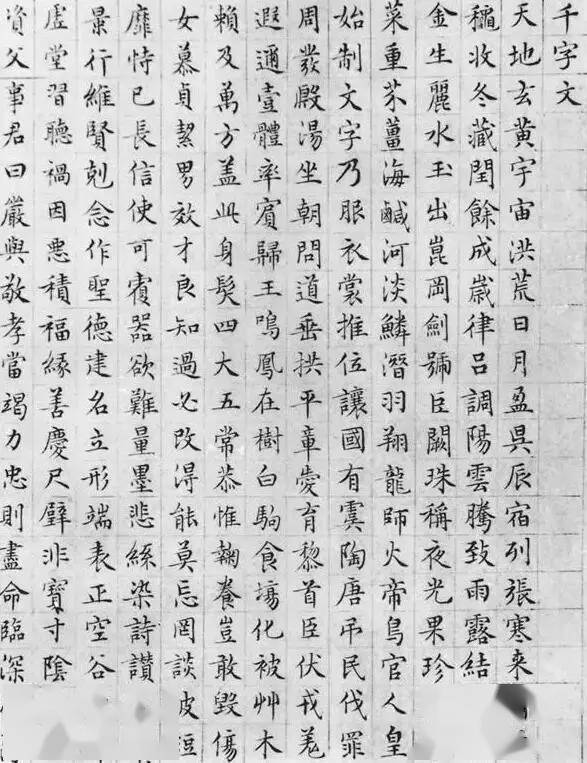 千字文
天地玄黃宇宙洪荒日月盈昃辰宿列張寒来
穐收冬藏閏餘成歲律呂調陽雲騰致雨露結
金生麗水玉出崑岡劍號巨闕珠稱夜光果珍
菜重芥薑海鹹河淡鱗潛羽翔龍師火帝鳥官人皇
始制文字乃服衣裳推位讓國有虞陶唐吊民伐罪
周發殷湯坐朝問道垂拱平章愛育黎首臣伏戎羌
遐邇壹體率賓歸王鳴鳳在樹白駒食場化被艸木
賴及萬方盖此身髮四大五常恭惟鞠養豈敢毀傷
女慕貞絜男效才良知過必改得能莫忘罔談
靡恃己長信使可覆器欲難量墨悲絲染詩讃
景行維賢剋念作聖德建名立形端表正空谷
虛堂習聽禍因惡積福緣善慶尺璧非寶寸陰
資父事君曰嚴與敬孝當竭力忠則盡命臨深